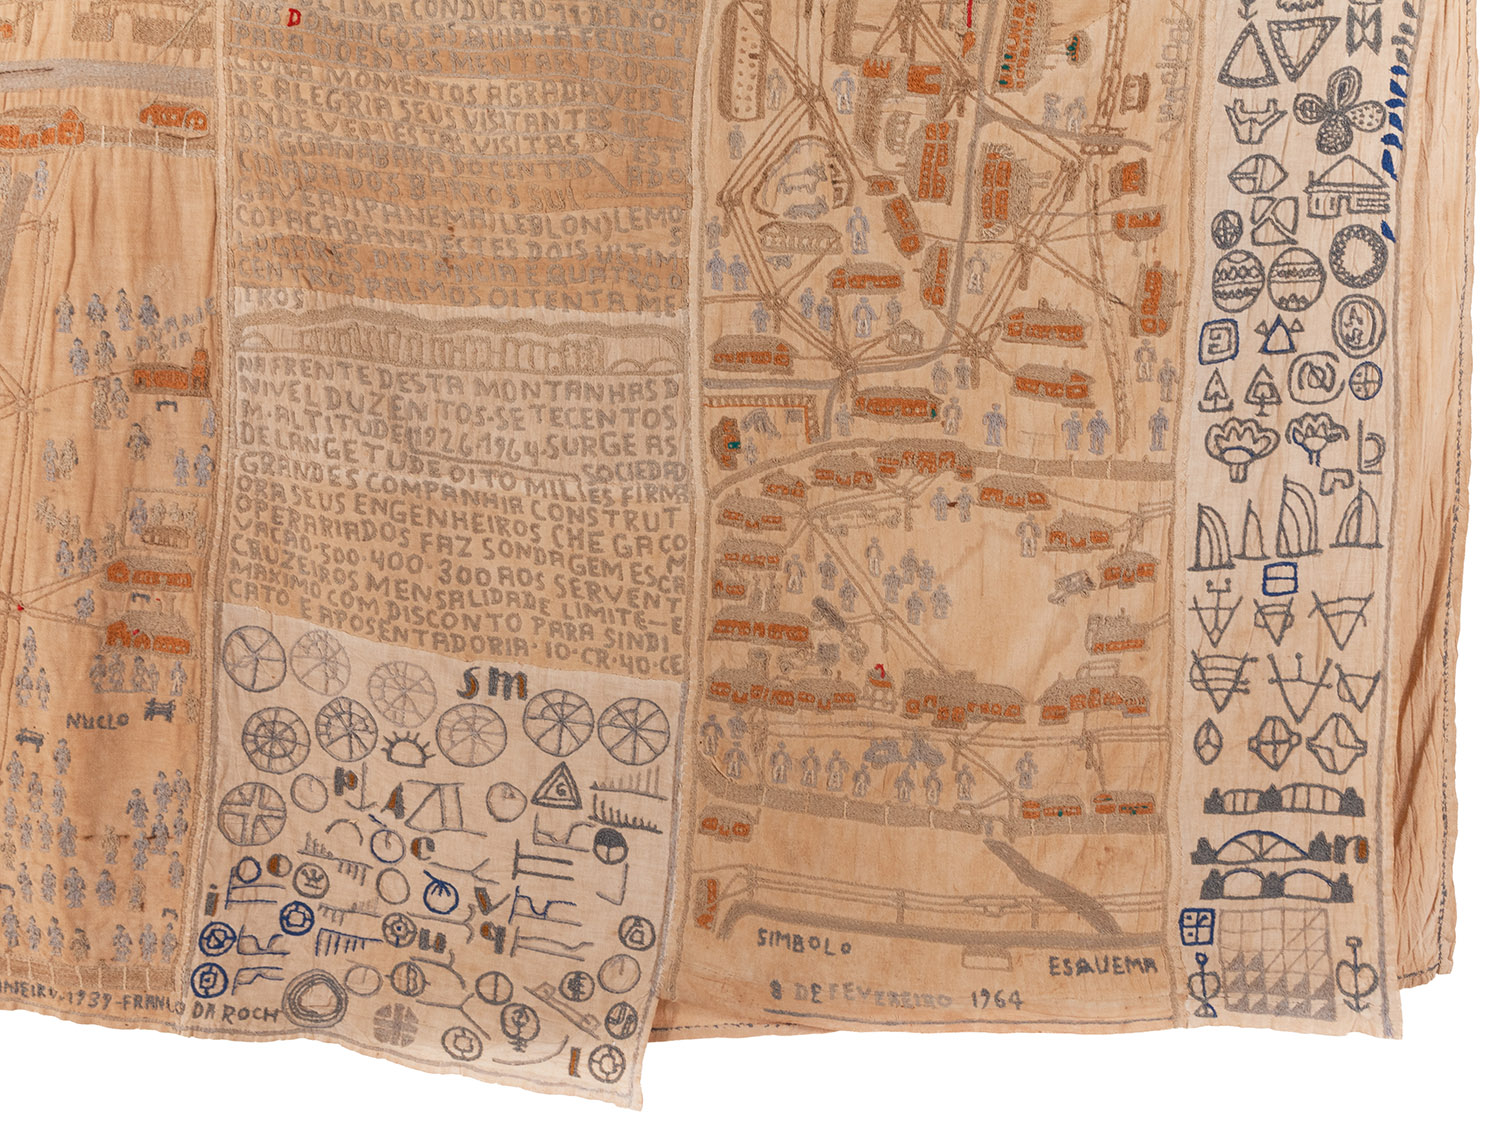 TIMA CONDUCAO 11 DA NOI
NOS DOMINGOS AS QUINTA FEIRA E
PARA DOENTES MENTAR PROPOR
CIONAL MOMENTOS AGRADAVEIS
DE ALEGRIA SEUS VISITANTES
ONDE VEM ESTAS VISITAS D
DA GUANABARA DO CENTRO
CIDADA DOS BAIRROS SUL
GAVEA IPANEMA LEBLON LEMO
COPACABANA ESTES DOIS ULTIMO
LUGARES DISTANCIA E QUATRO
CENTROS PALMOS OITENTA ME
TROS
NA FRENTE DESTA MONTANHAS D
NIVEL DUZENTOS-SETECENTOS
M·ALTITUDE 1926·1964·SURGE AS
DE LANGETUDE OITO MIL SOCIEDAD
GRANDES COMPANHIA IES FIRMA
OBRA SEUS ENGENHEIROS CONSTRUT
OPERARIADOS FAZ CHEGA CO
VACAO·500·400·300 SONDAGEM ESCA
CRUZEIROS MENSALIDADE AOS SERVENT
MAXIMO COM DISCONTO LIMITE—E
CATO E APOSENTADORIA PARA SINDI
10·CR·40·CE
SM
P
A
E
I
V
U
Q
L
NUCLO
NEIRO·1939-FRANCO DA ROCH
SIMBOLO
ESQUEMA
8 DE FEVEREIRO 1964